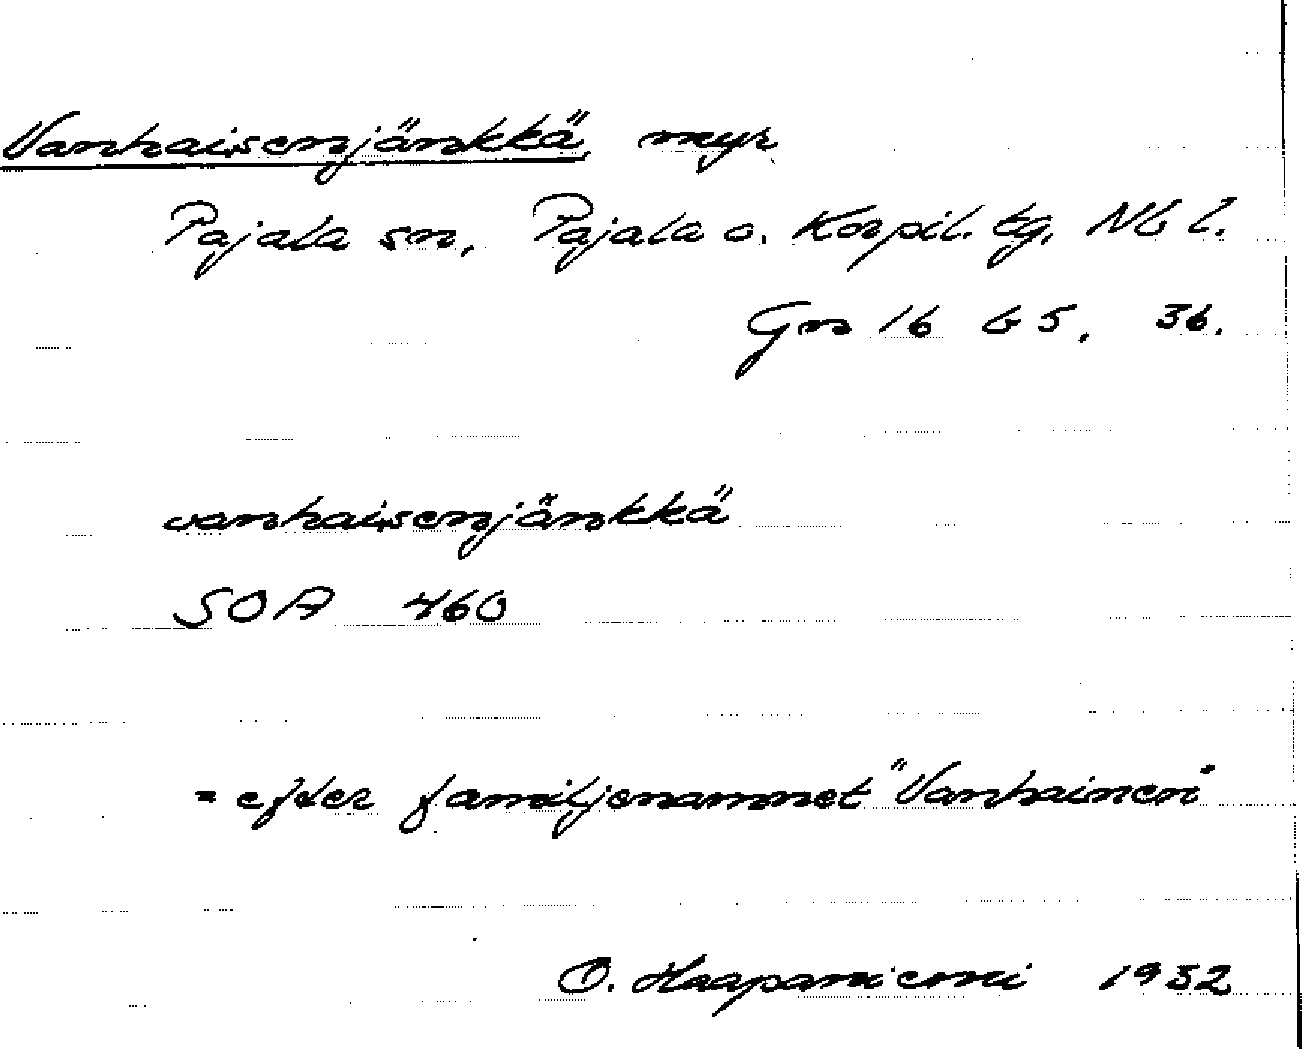 Vanhaisenjänkkä, myr
Pajala sn, Pajala o. Korpil. tg, Nb l.
Gn 16 b 5. 36.
vanhaisenjänkkä
SOA 460
= efter familjenamnet "Vanhainen"
O. Haapaniemi 1932